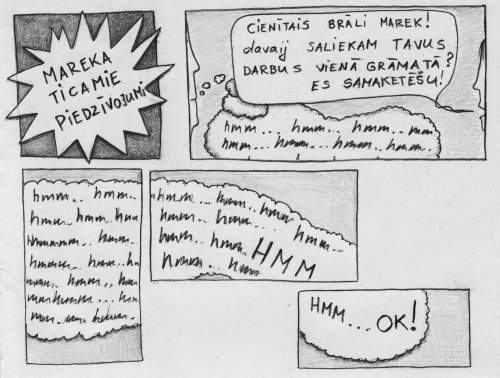 MAREKA
TICAMIE
PIEDZĪVOJUMI
CIENĪTAIS BRĀLI MAREK!
davaij SALIEKAM TAVUS
DARBUS VIENĀ GRĀMATĀ?
ES SAMAKETĒŠU!
hmm... hmm... hmm.. mmm
hmm... hmmm... hmm.. hmm.
hmm.. hmm..
hmm.. hmm. hmm
hmmmmm.. hmm.
hmmm.. hmm.. h
mmm.. hmm.. hm
mmhmmm... hm
mm.. mm. hmm.
hmmm... hmm.. hmm
hmm.. hmm... hmm...
hmm.. hmm. HMM
hmm... hmm
HMM... OK!